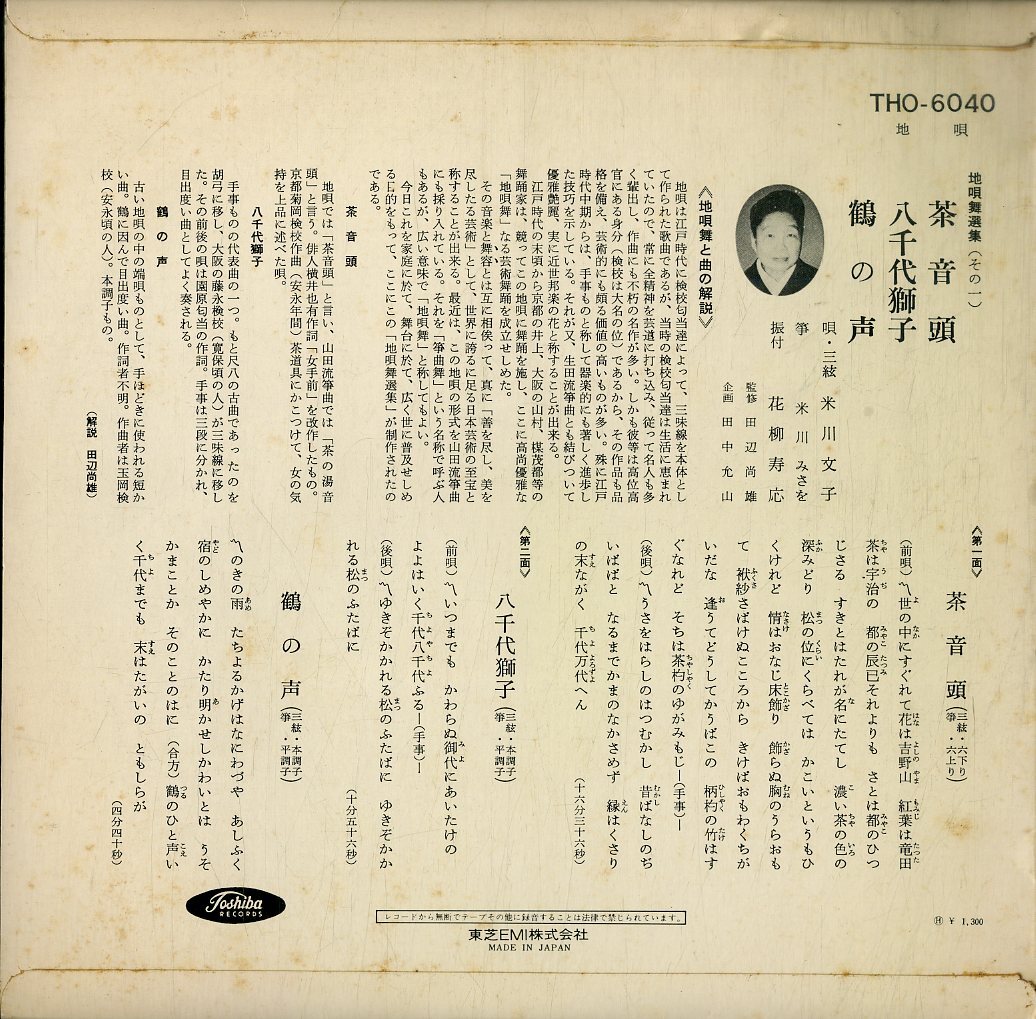 THO-6040
地唄
地唄舞選集（その一）
茶音頭
八千代獅子
鶴の声
唄・三絃 米川文子
箏 米川みさを
振付 花柳寿応
監修 田辺尚雄
企画 田中允山
《地唄舞と曲の解説》
地唄は江戸時代に検校勾当達によって、三味線を本体とし
て作られた歌曲であるが、当時の検校勾当達は生活に恵まれ
ていたので、常に全精神を芸道に打ち込み、従って名人も多
く輩出し、作曲にも不朽の名作が多い。しかも彼等は高位高
官にある身分（検校は大名の位）であるから、その作品も品
格を備え、芸術的にも頗る価値の高いものが多い。殊に江戸
時代中期からは、手事ものと称して器楽的にも著しく進歩し
た技巧を示している。それが又、生田流箏曲とも結びついて
優雅艶麗、実に近世邦楽の花と称することが出来る。
江戸時代の末頃から京都の井上、大阪の山村、楳茂都等の
舞踊家は、競ってこの地唄に舞踊を施し、ここに高尚優雅な
「地唄舞」なる芸術舞踊を成立せしめた。
その音楽と舞容とは互に相俟って、真に「善を尽し、美を
尽したる芸術」として、世界に誇るに足る日本芸術の至宝と
称することが出来る。最近は、この地唄の形式を山田流箏曲
にも採り入れている。それを「箏曲舞」という名称で呼ぶ人
もあるが、広い意味で「地唄舞」と称してもよい。
今日これを家庭に於て、舞台に於て、広く世に普及せしめ
る目的をもって、ここにこの「地唄舞選集」が制作されたの
である。
茶音頭
地唄では「茶音頭」と言い、山田流箏曲では「茶の湯音
頭」と言う。俳人横井也有作詞「女手前」を改作したもの。
京都菊岡検校作曲（安永年間）茶道具にかこつけて、女の気
持を上品に述べた唄。
八千代獅子
手事ものの代表曲の一つ。もと尺八の古曲であったのを
胡弓に移し、大阪の藤永検校（寛保頃の人）が三味線に移し
た。その前後の唄は園原勾当の作詞。手事は三段に分かれ、
目出度い曲としてよく奏される。
鶴の声
古い地唄の中の端唄ものとして、手ほどきに使われる短か
い曲。鶴に因んで目出度い曲。作詞者不明。作曲者は玉岡検
校（安永頃の人）。本調子もの。
（解説 田辺尚雄）
《第一面》
茶音頭（三絃・六下り 箏・六上り）
（前唄）〽世の中にすぐれて花は吉野山 紅葉は竜田
茶は宇治の 都の辰巳それよりも さとは都のひつ
じさる すきとはたれが名にたてし 濃い茶の色の
深みどり 松の位にくらべては かこいというもひ
くけれど 情はおなじ床飾り 飾らぬ胸のうらおも
て 袱紗さばけぬこころから きけばおもわくちが
いだな 逢うてどうしてかうばこの 柄杓の竹はす
ぐなれど そちは茶杓のゆがみもじ―（手事）―
（後唄）〽うさをはらしのはつむかし 昔ばなしのぢ
いばばと なるまでかまのなかさめず 縁はくさり
の末ながく 千代万代へん
（十六分三十六秒）
《第二面》
八千代獅子（三絃・本調子 箏・平調子）
（前唄）〽いつまでも かわらぬ御代にあいたけの
よよはいく千代八千代ふる―（手事）―
（後唄）〽ゆきぞかかれる松のふたばに ゆきぞかか
れる松のふたばに
（十分五十六秒）
鶴の声（三絃・本調子 箏・平調子）
〽のきの雨 たちよるかげはなにわづや あしふく
宿のしめやかに かたり明かせしかわいとは うそ
かまことか そのことのはに（合方）鶴のひと声い
く千代までも 末はたがいの ともしらが
（四分四十秒）
Toshiba
RECORDS
レコードから無断でテープその他に録音することは法律で禁じられています。
東芝EMI株式会社
MADE IN JAPAN
Ⓗ ¥ 1,300